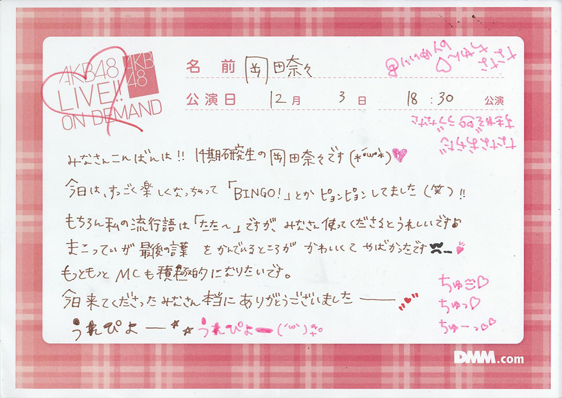 AKB48
LIVE!!
ON DEMAND
AKB
48
名前 岡田奈々
公演日 12月 3日 18:30 公演
みなさんこんばんは!! 14期研究生の岡田奈々です(*´ω`*)♥
今日は、すっごく楽しくなっちゃって「BINGO!」とかピョンピョンしてました(笑)!!
もちろん私の流行語は「たた〜」ですが、みなさん使ってくださるとうれしいです♪
まこっていが最後の言葉をかんでいるところがかわいくてやばかったです
もっともっとMCも積極的になりたいです。
今日来てくださったみなさん本当にありがとうございました――
うれぴよー**うれぴよー(´ω`)
ちゅ♡
ちゅっ♡
ちゅーっ♡
DMM.com